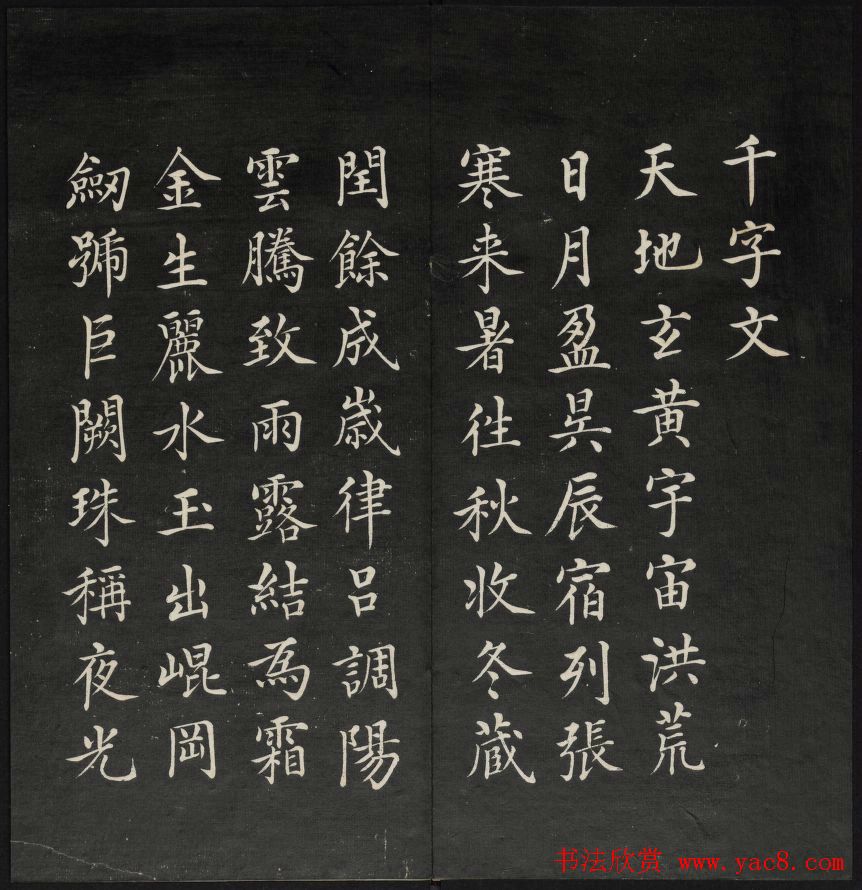 千字文
天地玄黄宇宙洪荒
日月盈昃辰宿列張
寒来暑往秋收冬蔵
閏餘成歲律吕調陽
雲騰致雨露結為霜
金生麗水玉出崐岡
劒號巨闕珠稱夜光
书法欣赏 www.yac8.com